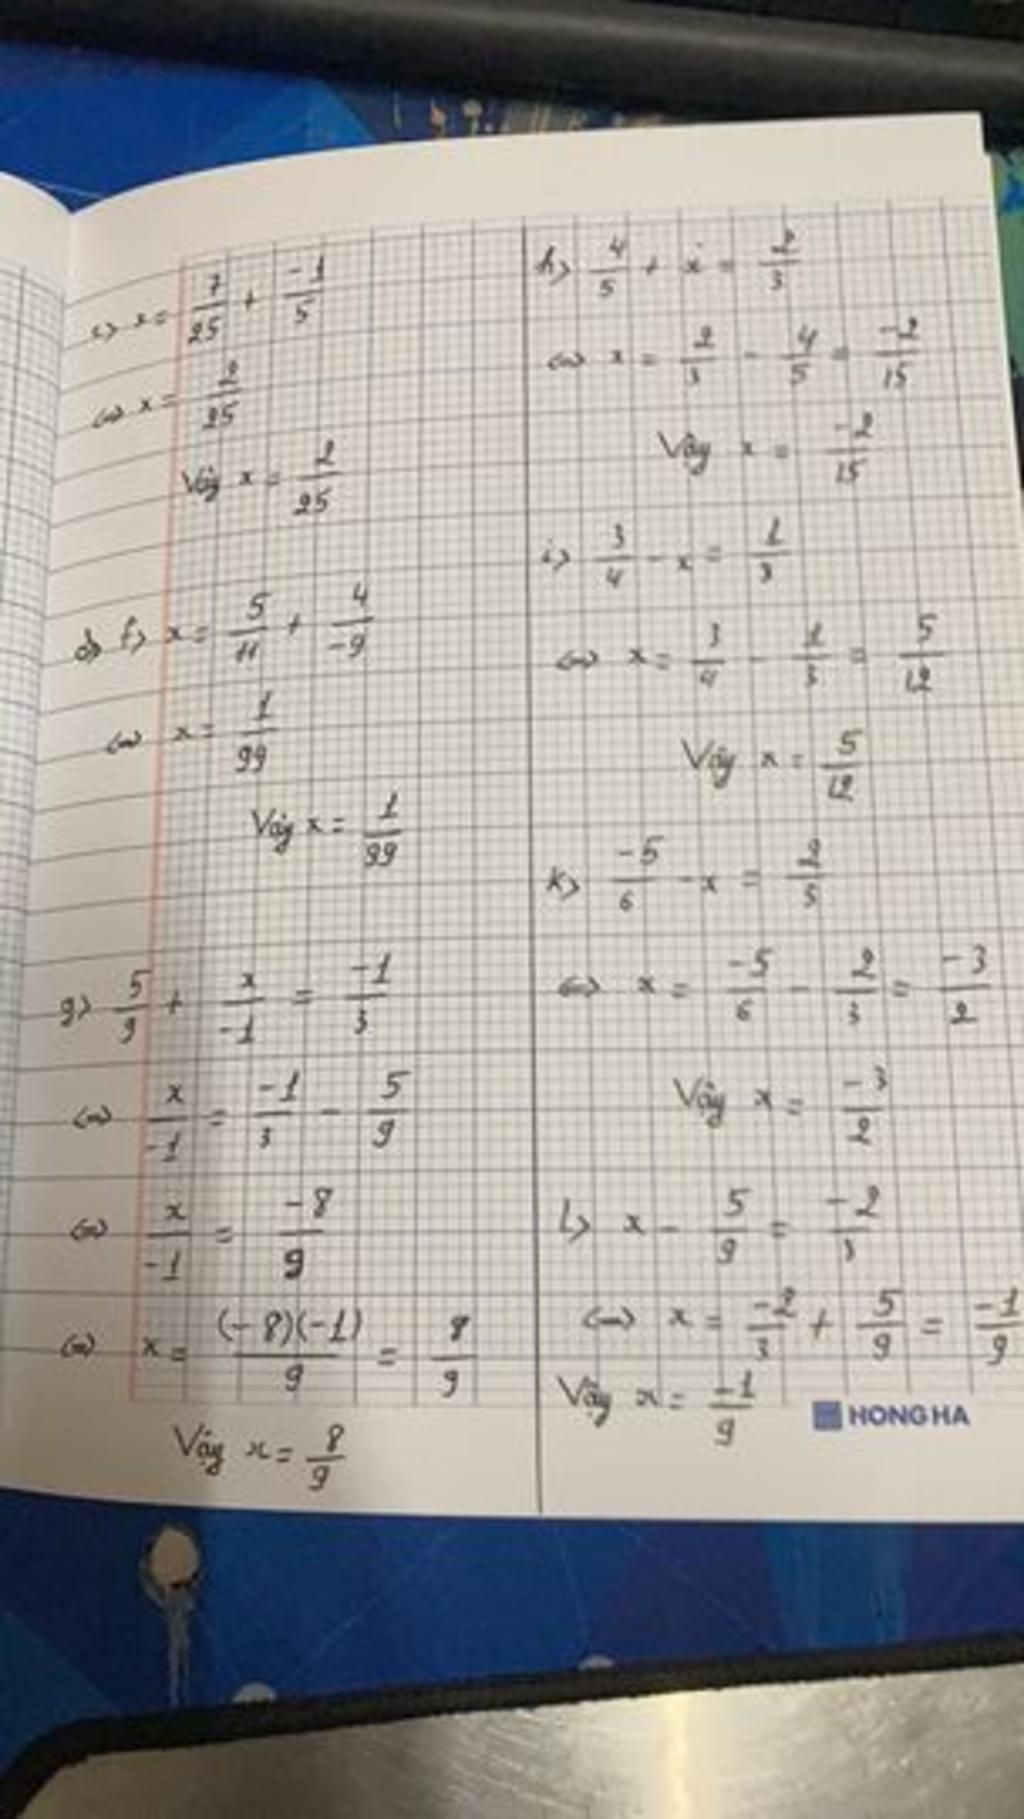 c) x = 7/25 + -1/5
⇔ x = 2/25
Vậy x = 2/25
d) f) x = 5/11 + 4/-9
⇔ x = 1/99
Vậy x = 1/99
g) 5/9 + x/-1 = -1/3
⇔ x/-1 = -1/3 - 5/9
⇔ x/-1 = -8/9
⇔ x = (-8)(-1)/9 = 8/9
Vậy x = 8/9
h) 4/5 + x = 2/3
⇔ x = 2/3 - 4/5 = -2/15
Vậy x = -2/15
i) 3/4 - x = 1/3
⇔ x = 3/4 - 1/3 = 5/12
Vậy x = 5/12
k) -5/6 - x =
⇔ x = -5/6 - 2/3 = -3/2
Vậy x = -3/2
l) x - 5/9 = -2/3
⇔ x = -2/3 + 5/9 = -1/9
Vậy x = -1/9
HONG HA